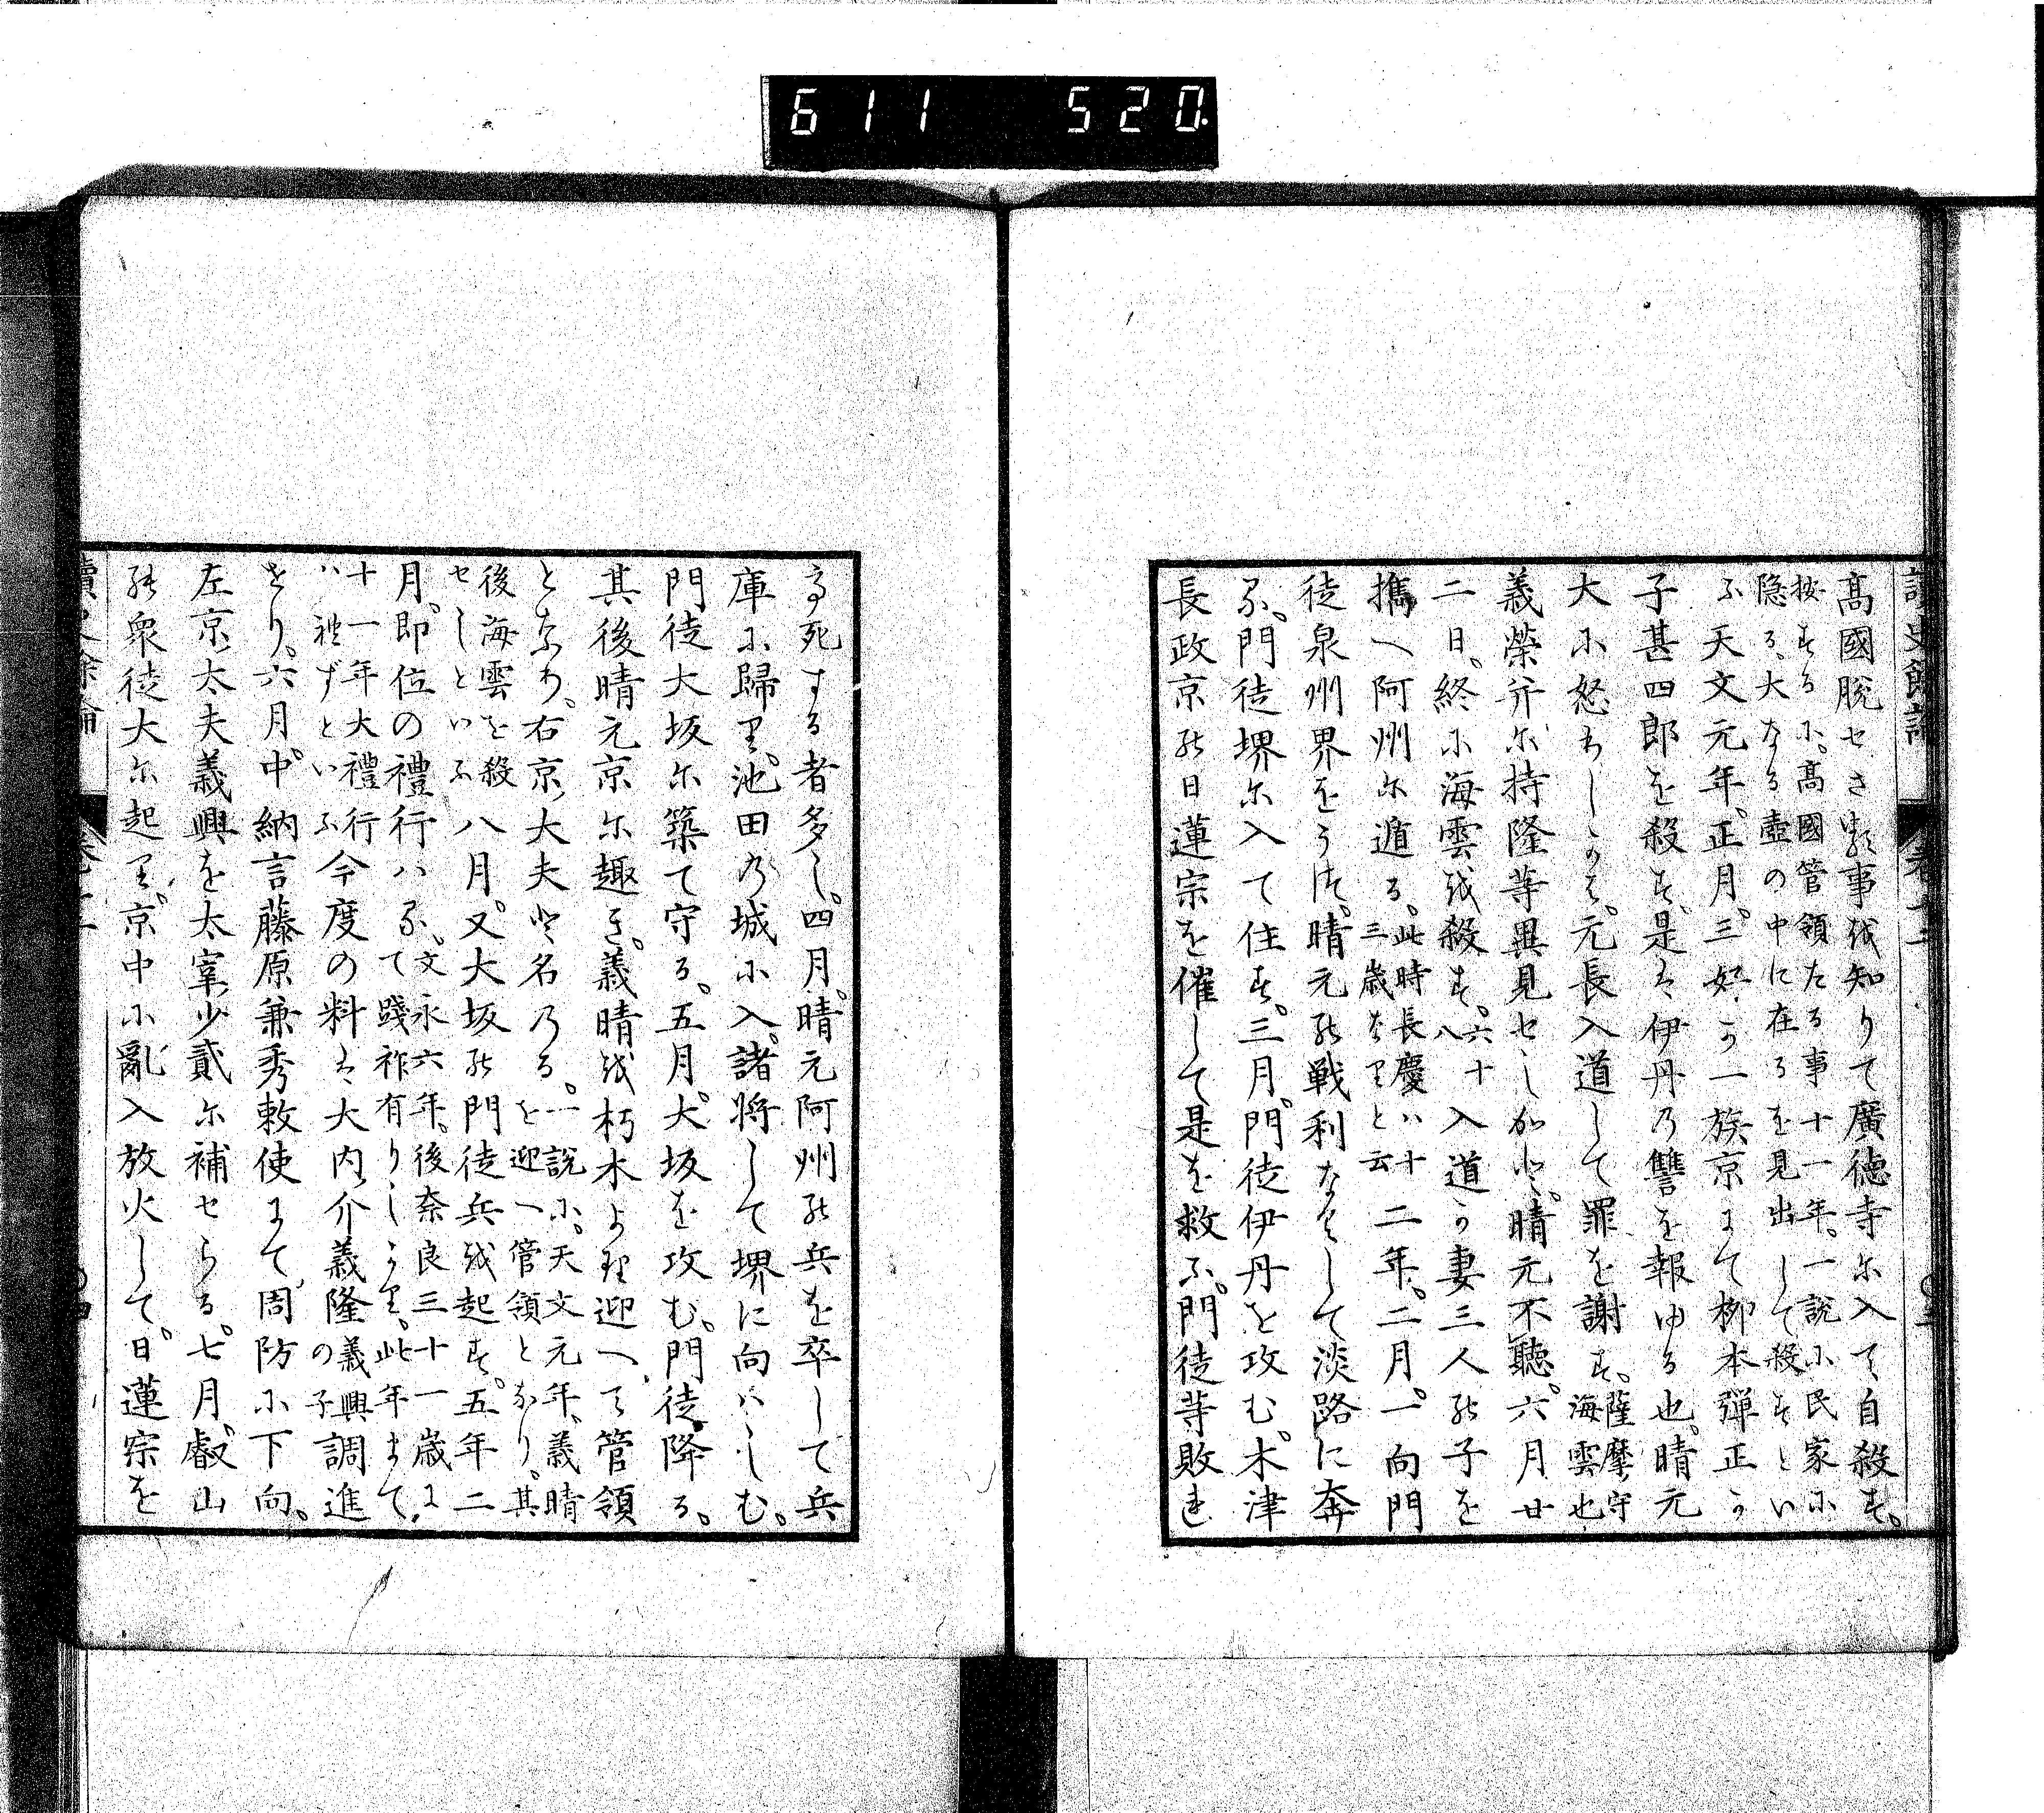 611 520.
讀史餘論 卷十二
高國脱せさる事を知りて廣徳寺に入て自殺す。
按するに。高國管領たる事十一年。一説に民家に
隠る、大なる壺の中に在るを見出して殺すとい
ふ天文元年。正月。三好か一族京にて柳本彈正か
子甚四郎を殺す。是は伊丹の讐を報ゆる也。晴元
大に怒りしかは。元長入道して罪を謝す。薩摩守
海雲也
義榮并に持隆等異見せしかと。晴元不聽。六月廿
二日。終に海雲を殺す。六十
八入道か妻三人の子を
攜へ阿州に遁る。此時長慶ハ十
三歳なりと云二年。二月。一向門
徒泉州界をうつ。晴元の戰利なくして淡路に奔
る。門徒堺に入て住す。三月。門徒伊丹を攻む。木津
長政京の日蓮宗を催して是を救ふ。門徒等敗れ
て死する者多し。四月。晴元阿州の兵を卒して兵
庫に歸り。池田の城に入。諸將して堺に向ハしむ。
門徒大坂に築て守る。五月。大坂を攻む。門徒降る。
其後晴元京に趣き。義晴を朽木より迎へて管領
となり。右京大夫と名のる。一説に。天文元年、義晴
を迎へ管領となり。其
後海雲を殺
せしといふ八月。又大坂の門徒兵を起す。五年二
月。即位の禮行ハる。文永六年。後奈良三十一歳に
て踐祚有りしかり。此年まて
十一年大禮行
ハれずといふ今度の料は大内介義隆義興
の子調進
せり。六月。中納言藤原兼秀敕使にて周防に下向。
左京太夫義興を太宰少貳に補せらる。七月。叡山
の衆徒大に起り。京中に亂入放火して。日蓮宗を
讀史餘論 卷十二